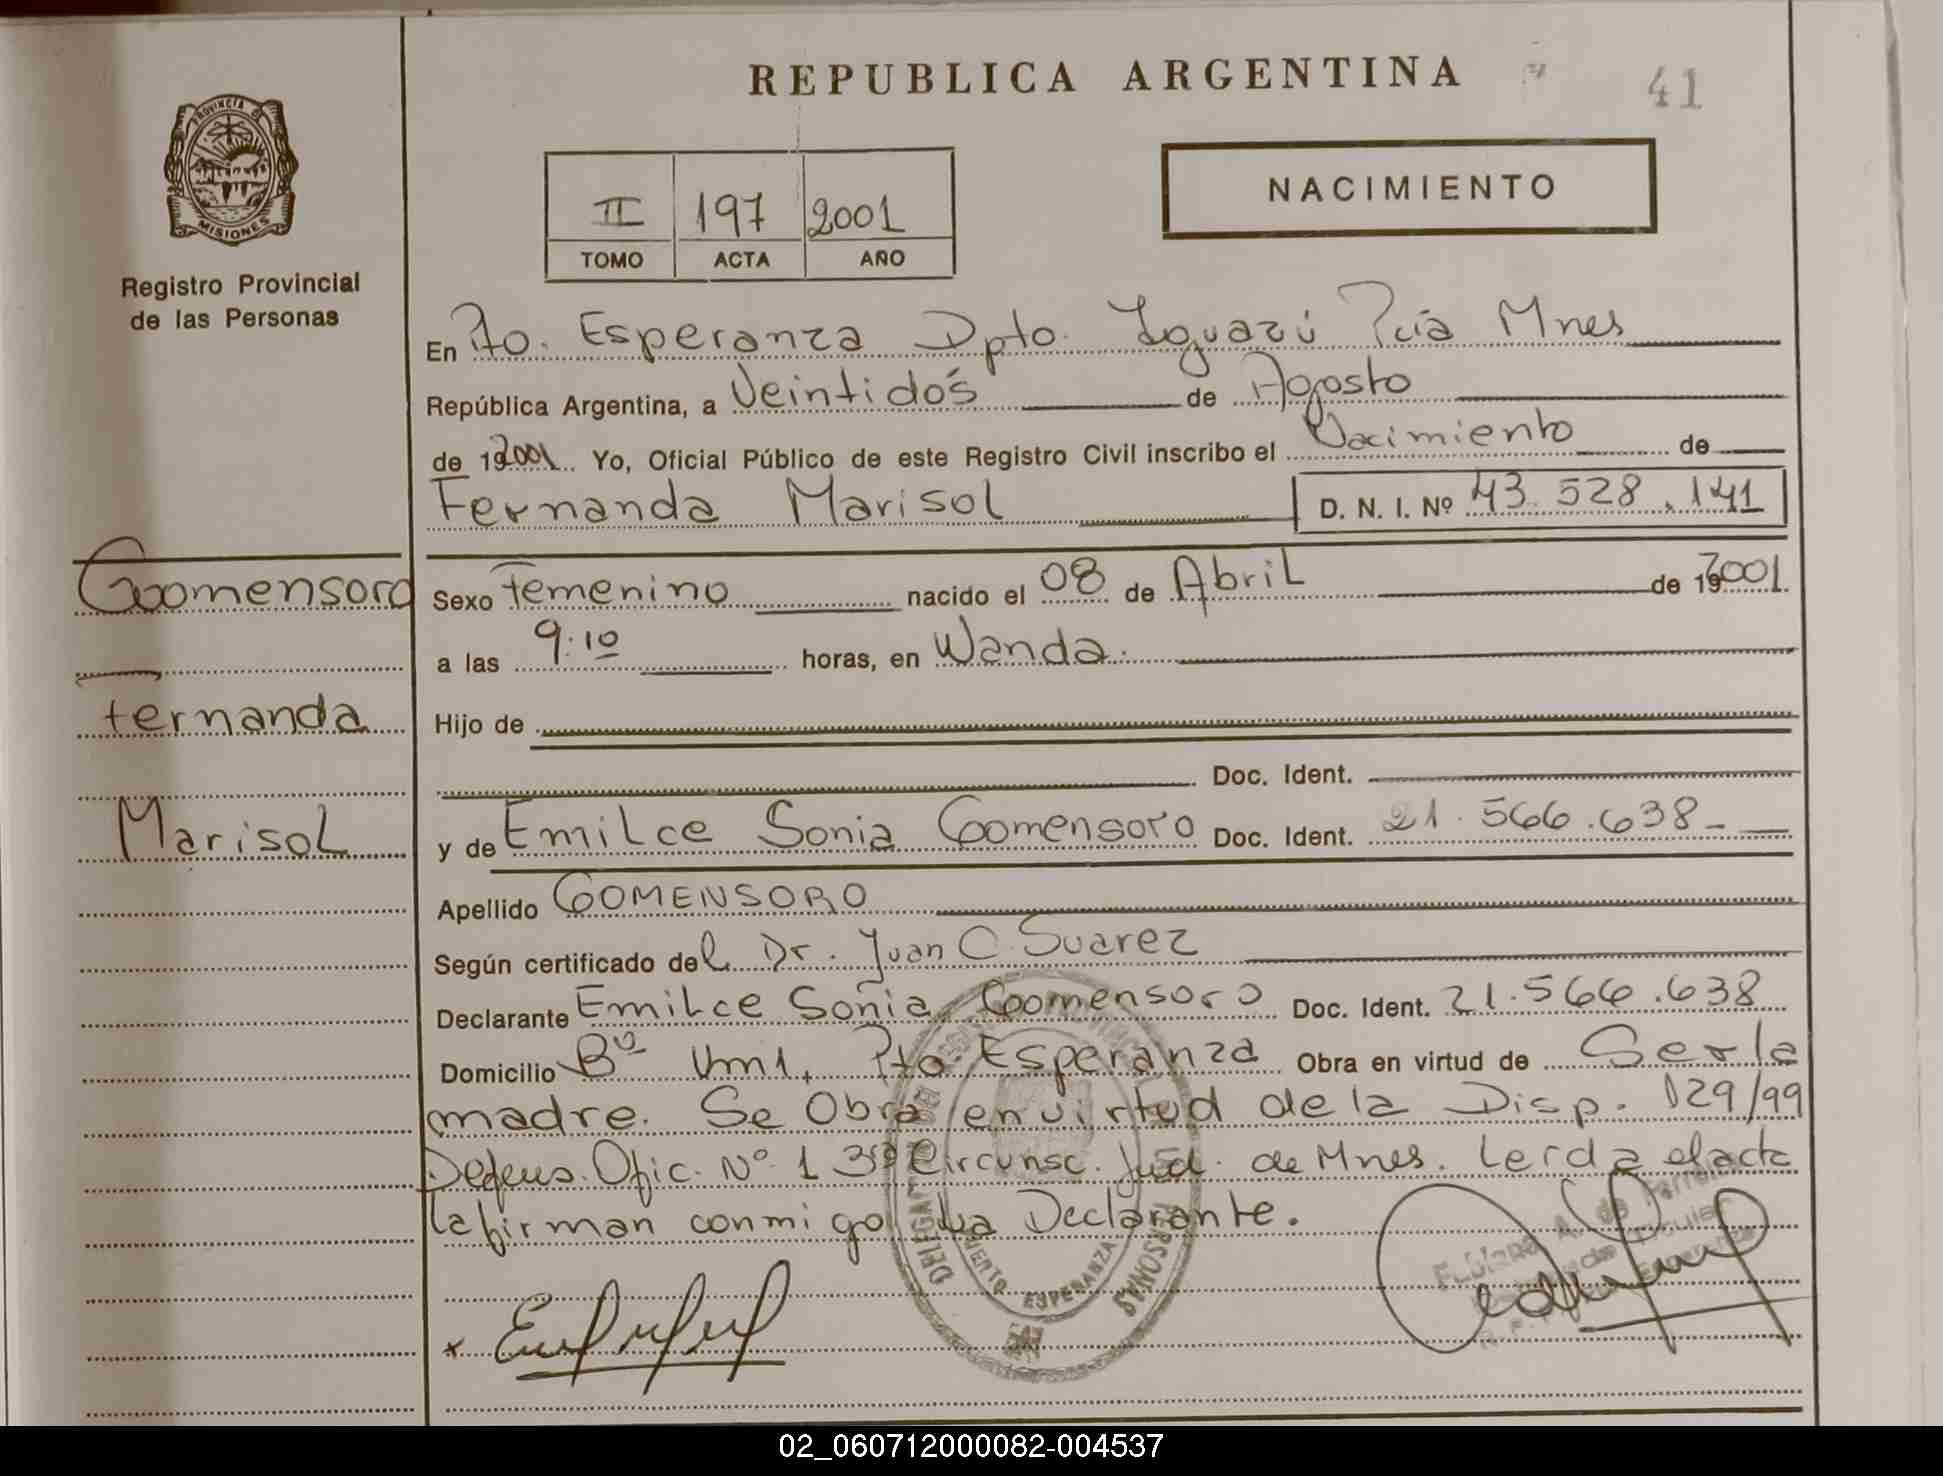 REPUBLICA ARGENTINA
41
PROVINCIA D
MISIONES
Registro Provincial
de las Personas
II 197 2001
TOMO ACTA AÑO
NACIMIENTO
En Pto. Esperanza Dpto. Iguazú Pcia Mnes
República Argentina, a Veintidós de Agosto
de 192001 Yo, Oficial Público de este Registro Civil inscribo el Nacimiento de
Fernanda Marisol D. N. I. Nº 43.528.141
Gomensoro
Fernanda
Marisol
Sexo Femenino nacido el 08 de Abril de 192001.
a las 9:10 horas, en Wanda.
Hijo de
Doc. Ident.
y de Emilce Sonia Gomensoro Doc. Ident. 21.566.638-
Apellido GOMENSORO
Según certificado del Dr. Juan C. Suarez
Declarante Emilce Sonia Gomensoro Doc. Ident. 21.566.638
Domicilio Bº Km1, Pto. Esperanza Obra en virtud de Ser la
madre. Se Obra en virtud de la Disp. 129/99
Defens. Ofic. Nº 1 3ra Circunsc. Jud. de Mnes. Leida el acta
la firman conmigo La Declarante.
PERSONAS
ESPERANZA
A. de Ferreira
02_060712000082-004537